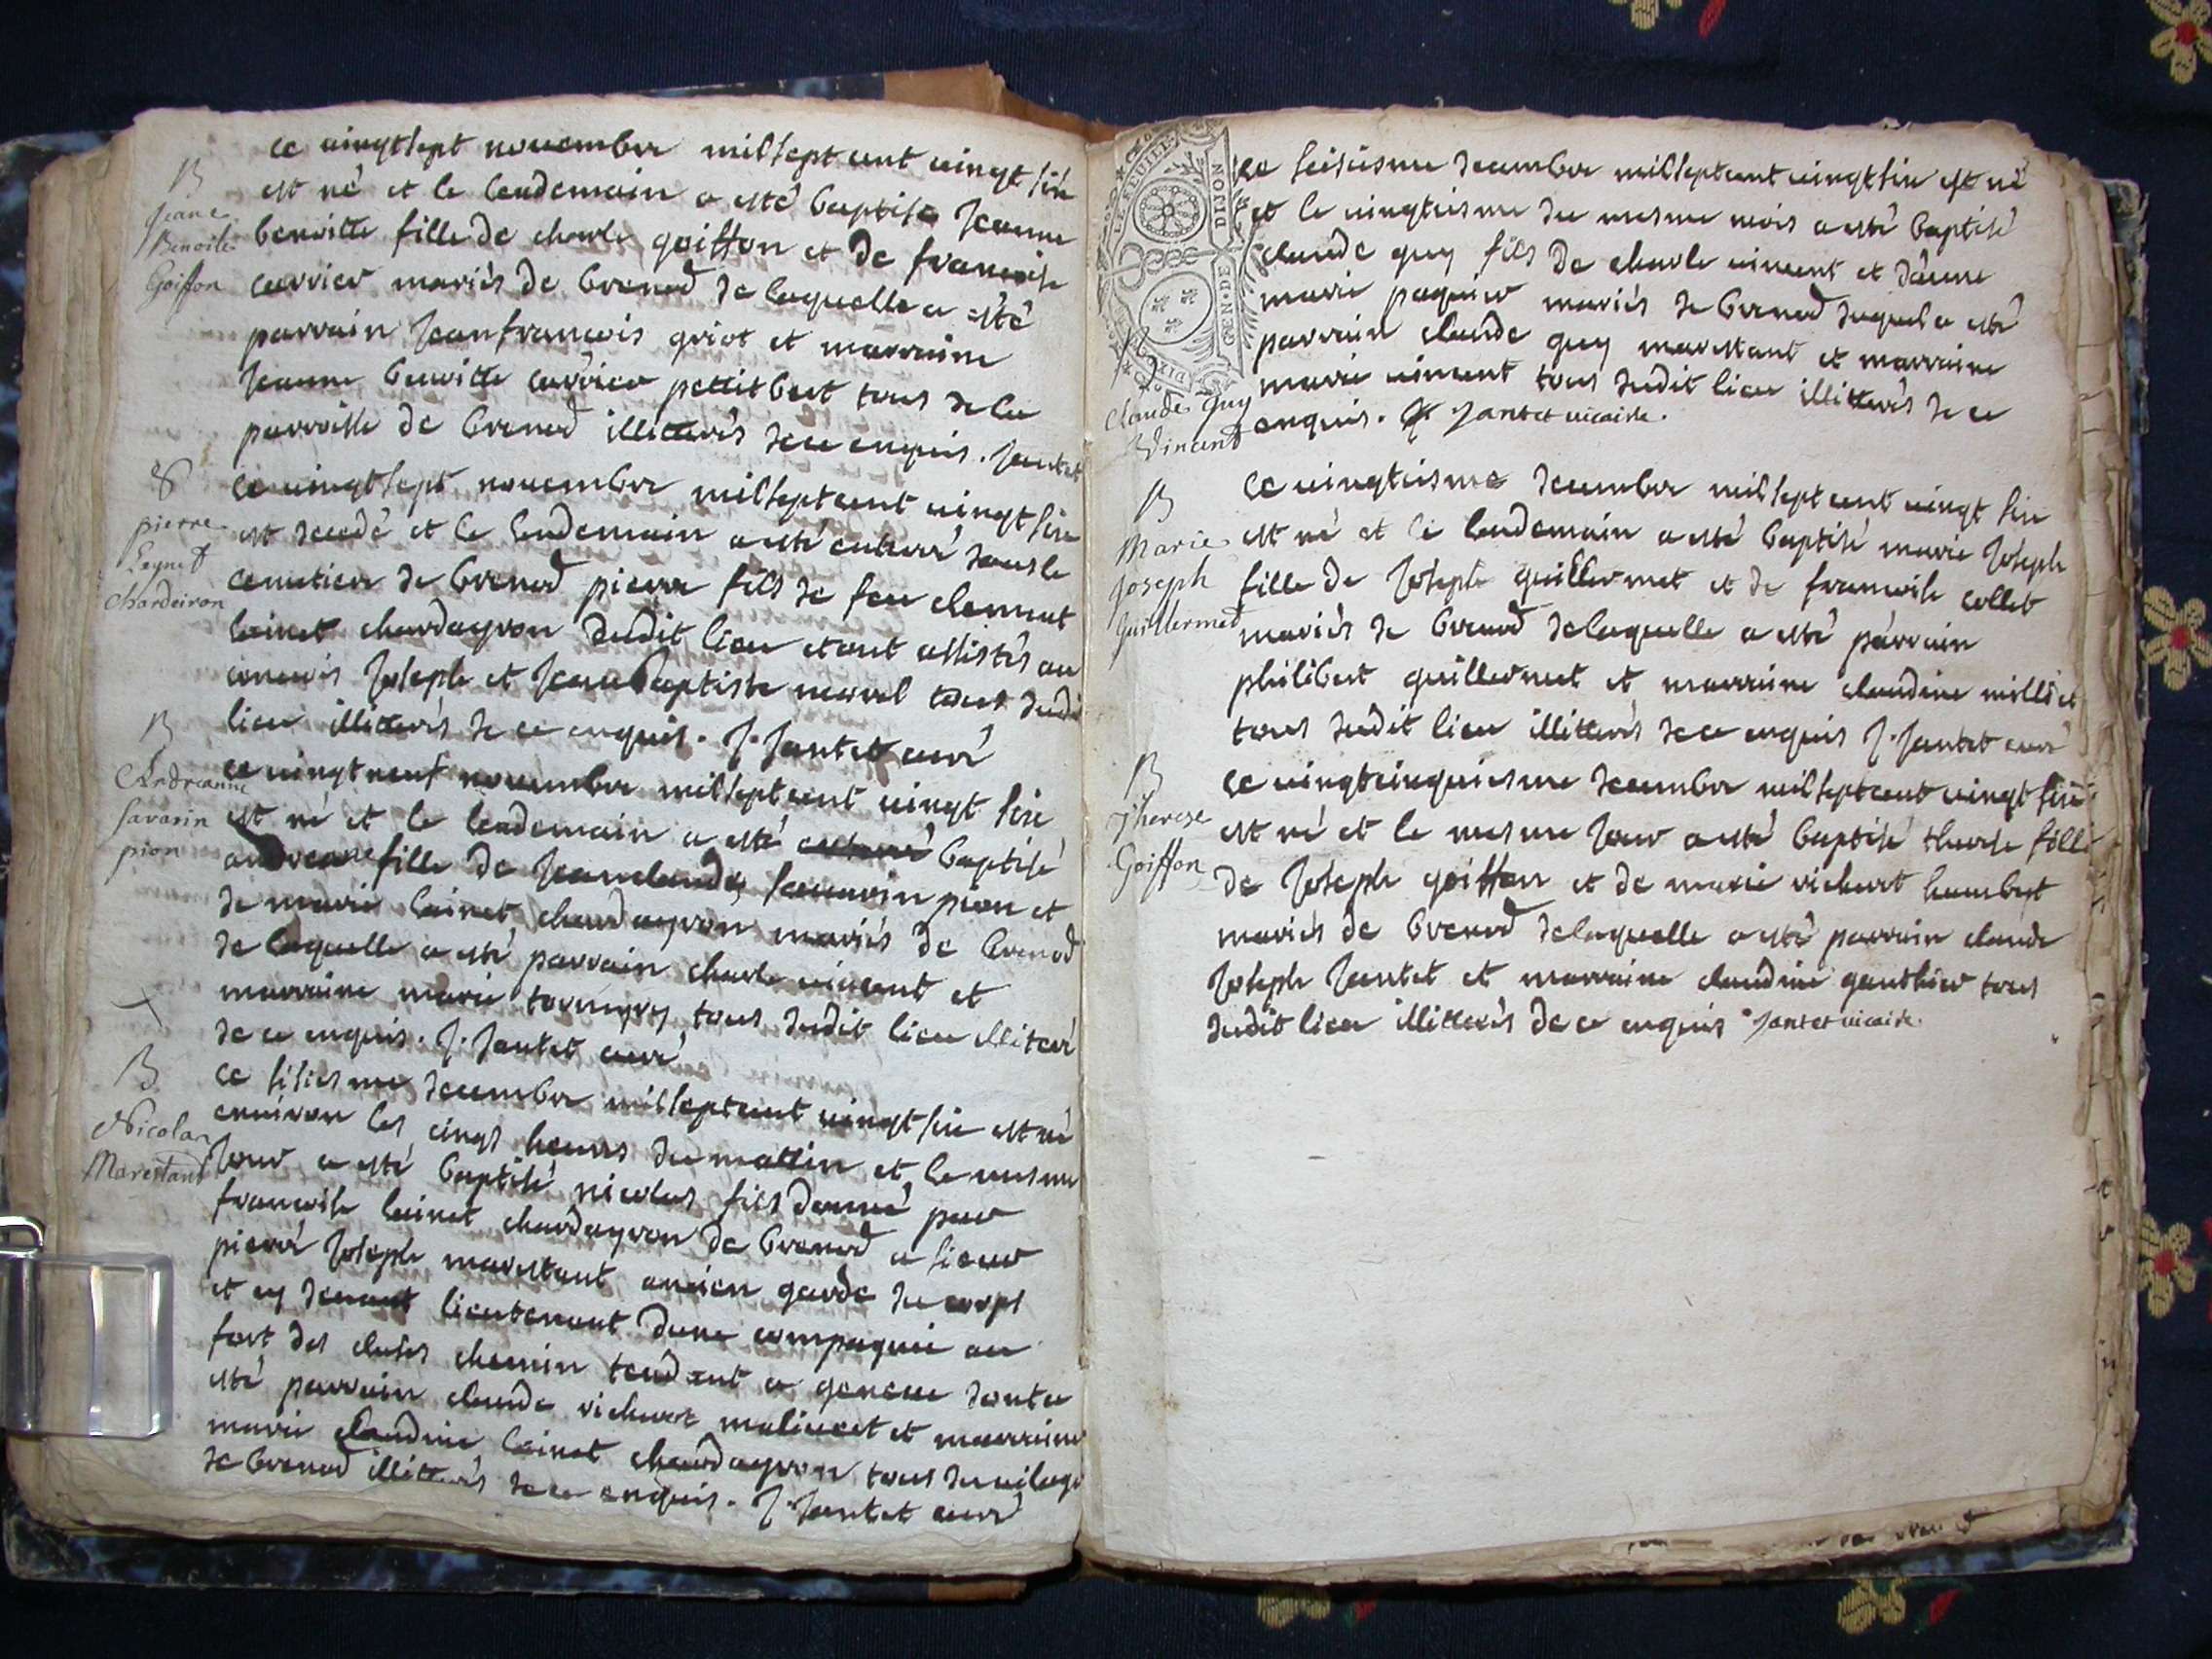 B
Jeane
Benoite
Goiffon
ce vingtsept novembre milsept cent vingt sixe
est né et le lendemain a esté baptisé Jeanne
benoitte fille de charle goiffon et de francoise
carrier mariés de brenod de laquelle a esté
parrain Jeanfrancois griot et marraine
Jeanne benoitte carrier pettit bert tous de la
parroisse de brenod illitterés de ce enquis. Jantet
S
pierre
Leynet
Chardeiron
ce vingtsept novembre milseptcent vingt sixe
est decedé et le lendemain a esté enterré dans le
cemetiere de brenod pierre fils de feu clement
leinet chardayron dudit lieu etant assistés au
convois Joseph et Jean baptiste morel tous dudit
lieu illitterés de ce enquis. J. Jantet curé
B
Andreanne
Savarin
pion
ce vingt neuf novembre milseptcent vingt sixe
est né et le lendemain a esté enterré baptisé
andreane fille de Jeanclaude savarin pion et
de marie leinet chardayron mariés de brenod
de laquelle a esté parrain charle vincent et
marraine marie tornyry tous dudit lieu illiteré
de ce enquis. J. Jantet curé
B
Nicolas
Marestant
ce sisiesme decembre milseptcent vingt sixe est né
environ les cinqt heures du mattin et le mesme
Jour a esté baptisé nicolas fils donné par
francoise leinet chardayron de brenod a sieur
pierré Joseph marestant ancien garde du corps
et cy devant lieutenant dune compagnie au
fort des cluses chemin tendant a geneve dont a
esté parrain claude richerot malincet et marraine
marie claudine leinet chardayron tous du vilage
de brenod illitterés de ce enquis. J. Jantet curé
GEN. DE DIJON
B
Claude Guy
Vincent
ce seisiesme decembre milseptcent vingt sixe est né
et le vingtiesme du mesme mois a esté baptisé
claude guy fils de charle vincent et danne
marie paquier mariés de brenod duquel a esté
parrain claude guy marestant et marraine
marie vincent tous dudit lieu illitterés de ce
enquis. Jantet vicaire.
B
Marie
Joseph
Guillermet
ce vingtiesme decembre milsept cent vingt sixe
est né et le lendemain a esté baptisé marie Joseph
fille de Joseph guillermet et de francoise collet
mariés de brenod de laquelle a esté parrain
philibert guillermet et marraine claudine milliet
tous dudit lieu illitterés de ce enquis J. Jantet curé
B
Therese
Goiffon
ce vingtcinquiesme decembre milseptcent vingt sixe
est né et le mesme Jour a esté baptisé therese fille
de Joseph goiffon et de marie richerot humbert
mariés de brenod de laquelle a esté parrain claude
Joseph Jantet et marraine claudine gauthier tous
dudit lieu illitterés de ce enquis Jantet vicaire.